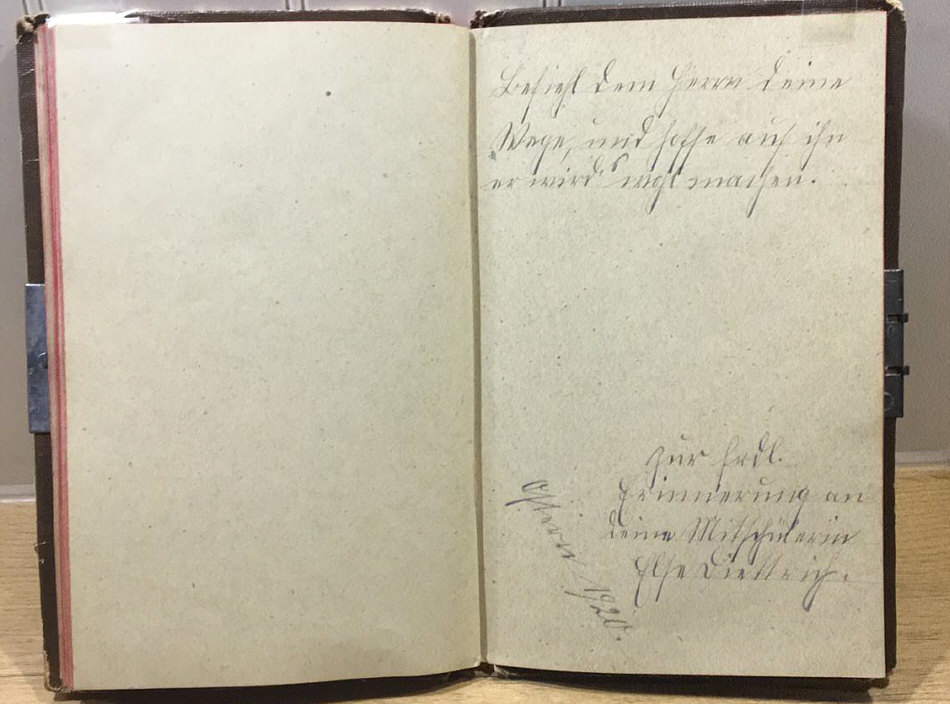 Befiehl dem Herrn deine
Wege, und hoffe auf ihn
er wird's wohl machen.
Zur frdl.
Erinnerung an
deine Mitschülerin
Else Diettrich.
Ostern 1920.